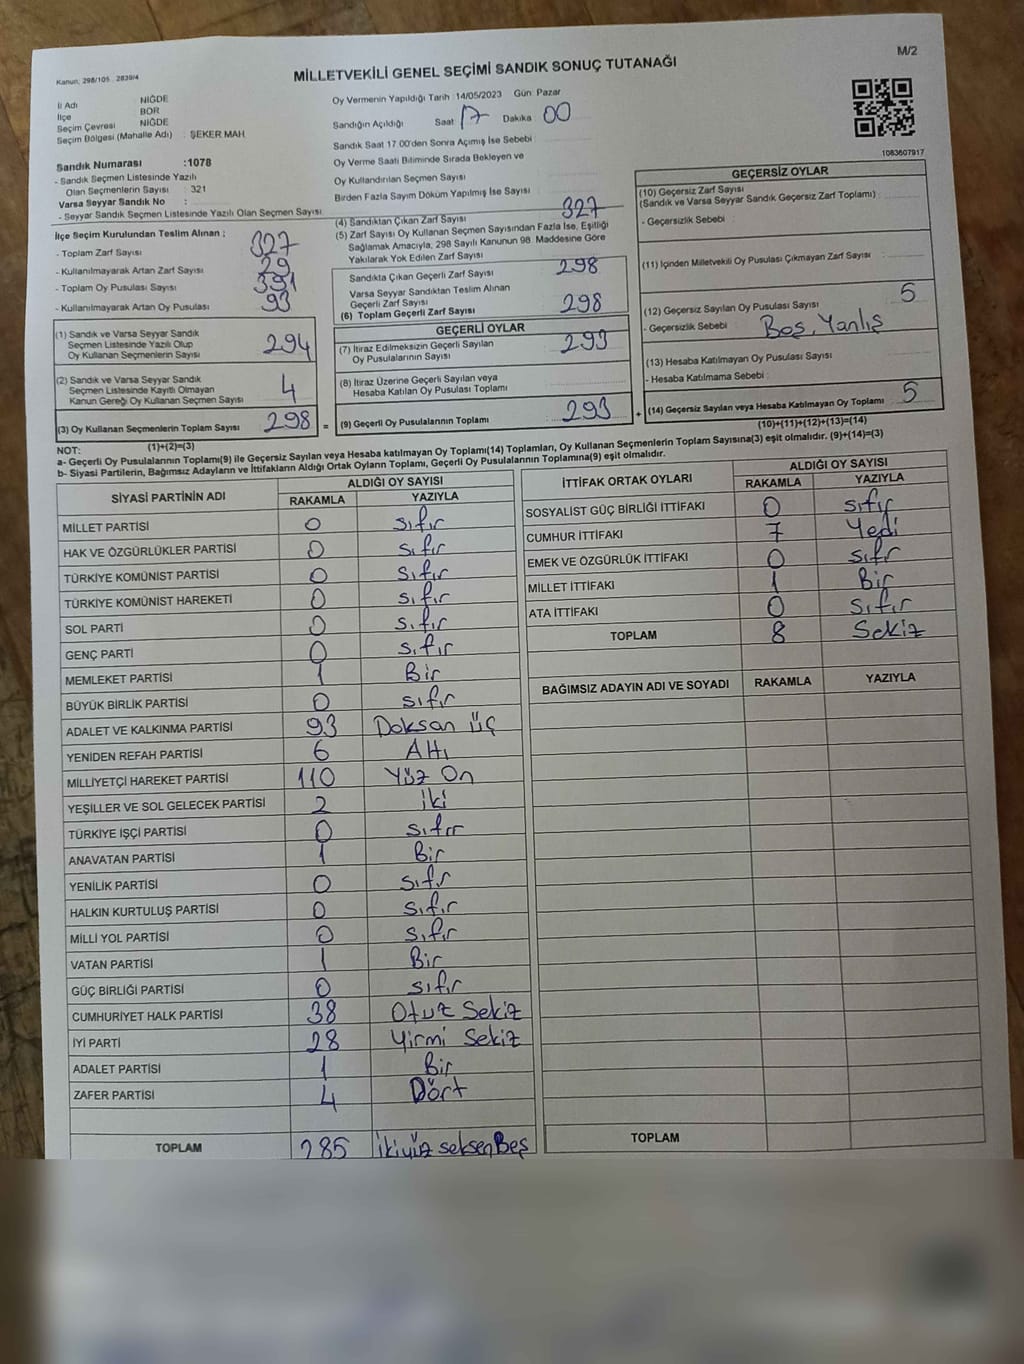 Kanun, 298/105 2839/4
M/2
MİLLETVEKİLİ GENEL SEÇİMİ SANDIK SONUÇ TUTANAĞI
İl Adı NİĞDE
İlçe BOR
Seçim Çevresi NİĞDE
Seçim Bölgesi (Mahalle Adı) : ŞEKER MAH
Sandık Numarası :1078
- Sandık Seçmen Listesinde Yazılı
Olan Seçmenlerin Sayısı : 321
Varsa Seyyar Sandık No :
- Seyyar Sandık Seçmen Listesinde Yazılı Olan Seçmen Sayısı
Oy Vermenin Yapıldığı Tarih :14/05/2023 Gün Pazar
Sandığın Açıldığı Saat 17 Dakika 00
Sandık Saat 17.00'den Sonra Açımış İse Sebebi :
Oy Verme Saati Bitiminde Sırada Bekleyen ve
Oy Kullandırılan Seçmen Sayısı :
Birden Fazla Sayım Döküm Yapılmış İse Sayısı :
1083607917
İlçe Seçim Kurulundan Teslim Alınan ;
- Toplam Zarf Sayısı 327
- Kullanılmayarak Artan Zarf Sayısı 29
- Toplam Oy Pusulası Sayısı 391
- Kullanılmayarak Artan Oy Pusulası 93
(1) Sandık ve Varsa Seyyar Sandık
Seçmen Listesinde Yazılı Olup
Oy Kullanan Seçmenlerin Sayısı 294
(2) Sandık ve Varsa Seyyar Sandık
Seçmen Listesinde Kayıtlı Olmayan
Kanun Gereği Oy Kullanan Seçmen Sayısı 4
(3) Oy Kullanan Seçmenlerin Toplam Sayısı 298 =
(1)+(2)=(3)
(4) Sandıktan Çıkan Zarf Sayısı 327
(5) Zarf Sayısı Oy Kullanan Seçmen Sayısından Fazla İse, Eşitliği
Sağlamak Amacıyla, 298 Sayılı Kanunun 98. Maddesine Göre
Yakılarak Yok Edilen Zarf Sayısı
Sandıkta Çıkan Geçerli Zarf Sayısı 298
Varsa Seyyar Sandıktan Teslim Alınan
Geçerli Zarf Sayısı
(6) Toplam Geçerli Zarf Sayısı 298
GEÇERLİ OYLAR
(7) İtiraz Edilmeksizin Geçerli Sayılan
Oy Pusulalarının Sayısı 293
(8) İtiraz Üzerine Geçerli Sayılan veya
Hesaba Katılan Oy Pusulası Toplamı
(9) Geçerli Oy Pusulalarının Toplamı 293 +
GEÇERSİZ OYLAR
(10) Geçersiz Zarf Sayısı
(Sandık ve Varsa Seyyar Sandık Geçersiz Zarf Toplamı) :
- Geçersizlik Sebebi :
(11) İçinden Milletvekili Oy Pusulası Çıkmayan Zarf Sayısı :
(12) Geçersiz Sayılan Oy Pusulası Sayısı 5
- Geçersizlik Sebebi Boş, Yanlış
(13) Hesaba Katılmayan Oy Pusulası Sayısı
- Hesaba Katılmama Sebebi
(14) Geçersiz Sayılan veya Hesaba Katılmayan Oy Toplamı 5
(10)+(11)+(12)+(13)=(14)
NOT:
a- Geçerli Oy Pusulalarının Toplamı(9) ile Geçersiz Sayılan veya Hesaba katılmayan Oy Toplamı(14) Toplamları, Oy Kullanan Seçmenlerin Toplam Sayısına(3) eşit olmalıdır. (9)+(14)=(3)
b- Siyasi Partilerin, Bağımsız Adayların ve İttifakların Aldığı Ortak Oyların Toplamı, Geçerli Oy Pusulalarının Toplamına(9) eşit olmalıdır.
SİYASİ PARTİNİN ADI ALDIĞI OY SAYISI
RAKAMLA YAZIYLA
MİLLET PARTİSİ 0 sıfır
HAK VE ÖZGÜRLÜKLER PARTİSİ 0 sıfır
TÜRKİYE KOMÜNİST PARTİSİ 0 sıfır
TÜRKİYE KOMÜNİST HAREKETİ 0 sıfır
SOL PARTİ 0 sıfır
GENÇ PARTİ 0 sıfır
MEMLEKET PARTİSİ 1 Bir
BÜYÜK BİRLİK PARTİSİ 0 sıfır
ADALET VE KALKINMA PARTİSİ 93 Doksan üç
YENİDEN REFAH PARTİSİ 6 Altı
MİLLİYETÇİ HAREKET PARTİSİ 110 Yüz On
YEŞİLLER VE SOL GELECEK PARTİSİ 2 iki
TÜRKİYE İŞÇİ PARTİSİ 0 sıfır
ANAVATAN PARTİSİ 1 Bir
YENİLİK PARTİSİ 0 sıfır
HALKIN KURTULUŞ PARTİSİ 0 sıfır
MİLLİ YOL PARTİSİ 0 sıfır
VATAN PARTİSİ 1 Bir
GÜÇ BİRLİĞİ PARTİSİ 0 sıfır
CUMHURİYET HALK PARTİSİ 38 Otuz Sekiz
İYİ PARTİ 28 Yirmi Sekiz
ADALET PARTİSİ 1 Bir
ZAFER PARTİSİ 4 Dört
TOPLAM 285 ikiyüz seksenBeş
İTTİFAK ORTAK OYLARI ALDIĞI OY SAYISI
RAKAMLA YAZIYLA
SOSYALİST GÜÇ BİRLİĞİ İTTİFAKI 0 sıfır
CUMHUR İTTİFAKI 7 Yedi
EMEK VE ÖZGÜRLÜK İTTİFAKI 0 sıfır
MİLLET İTTİFAKI 1 Bir
ATA İTTİFAKI 0 sıfır
TOPLAM 8 Sekiz
BAĞIMSIZ ADAYIN ADI VE SOYADI RAKAMLA YAZIYLA
TOPLAM